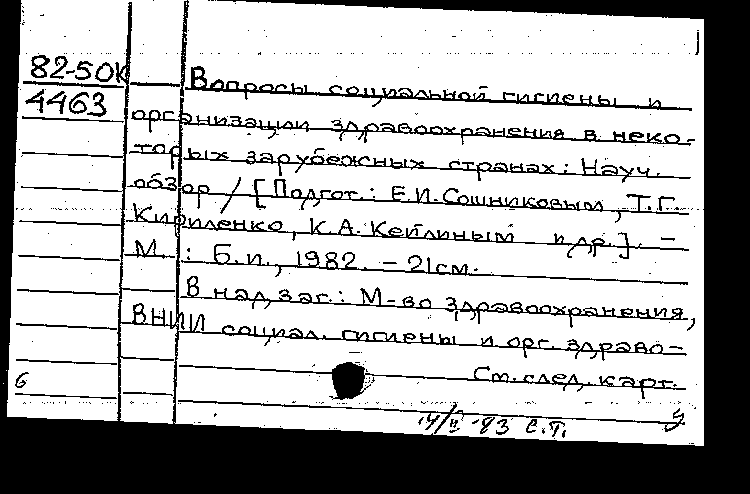 82-50К
4463
Вопросы социальной гигиены и
организации здравоохранения в неко-
торых зарубежных странах: Науч.
обзор / [Подгот.: Е.И. Сошниковым, Т.Г.
Кириленко, К.А. Кейлиным и др.]. –
М.: Б.и., 1982. – 21 см.
В надзаг.: М-во здравоохранения,
ВНИИ социал. гигиены и орг. здраво-
См. след. карт.
6
14/II-83 С.Т.